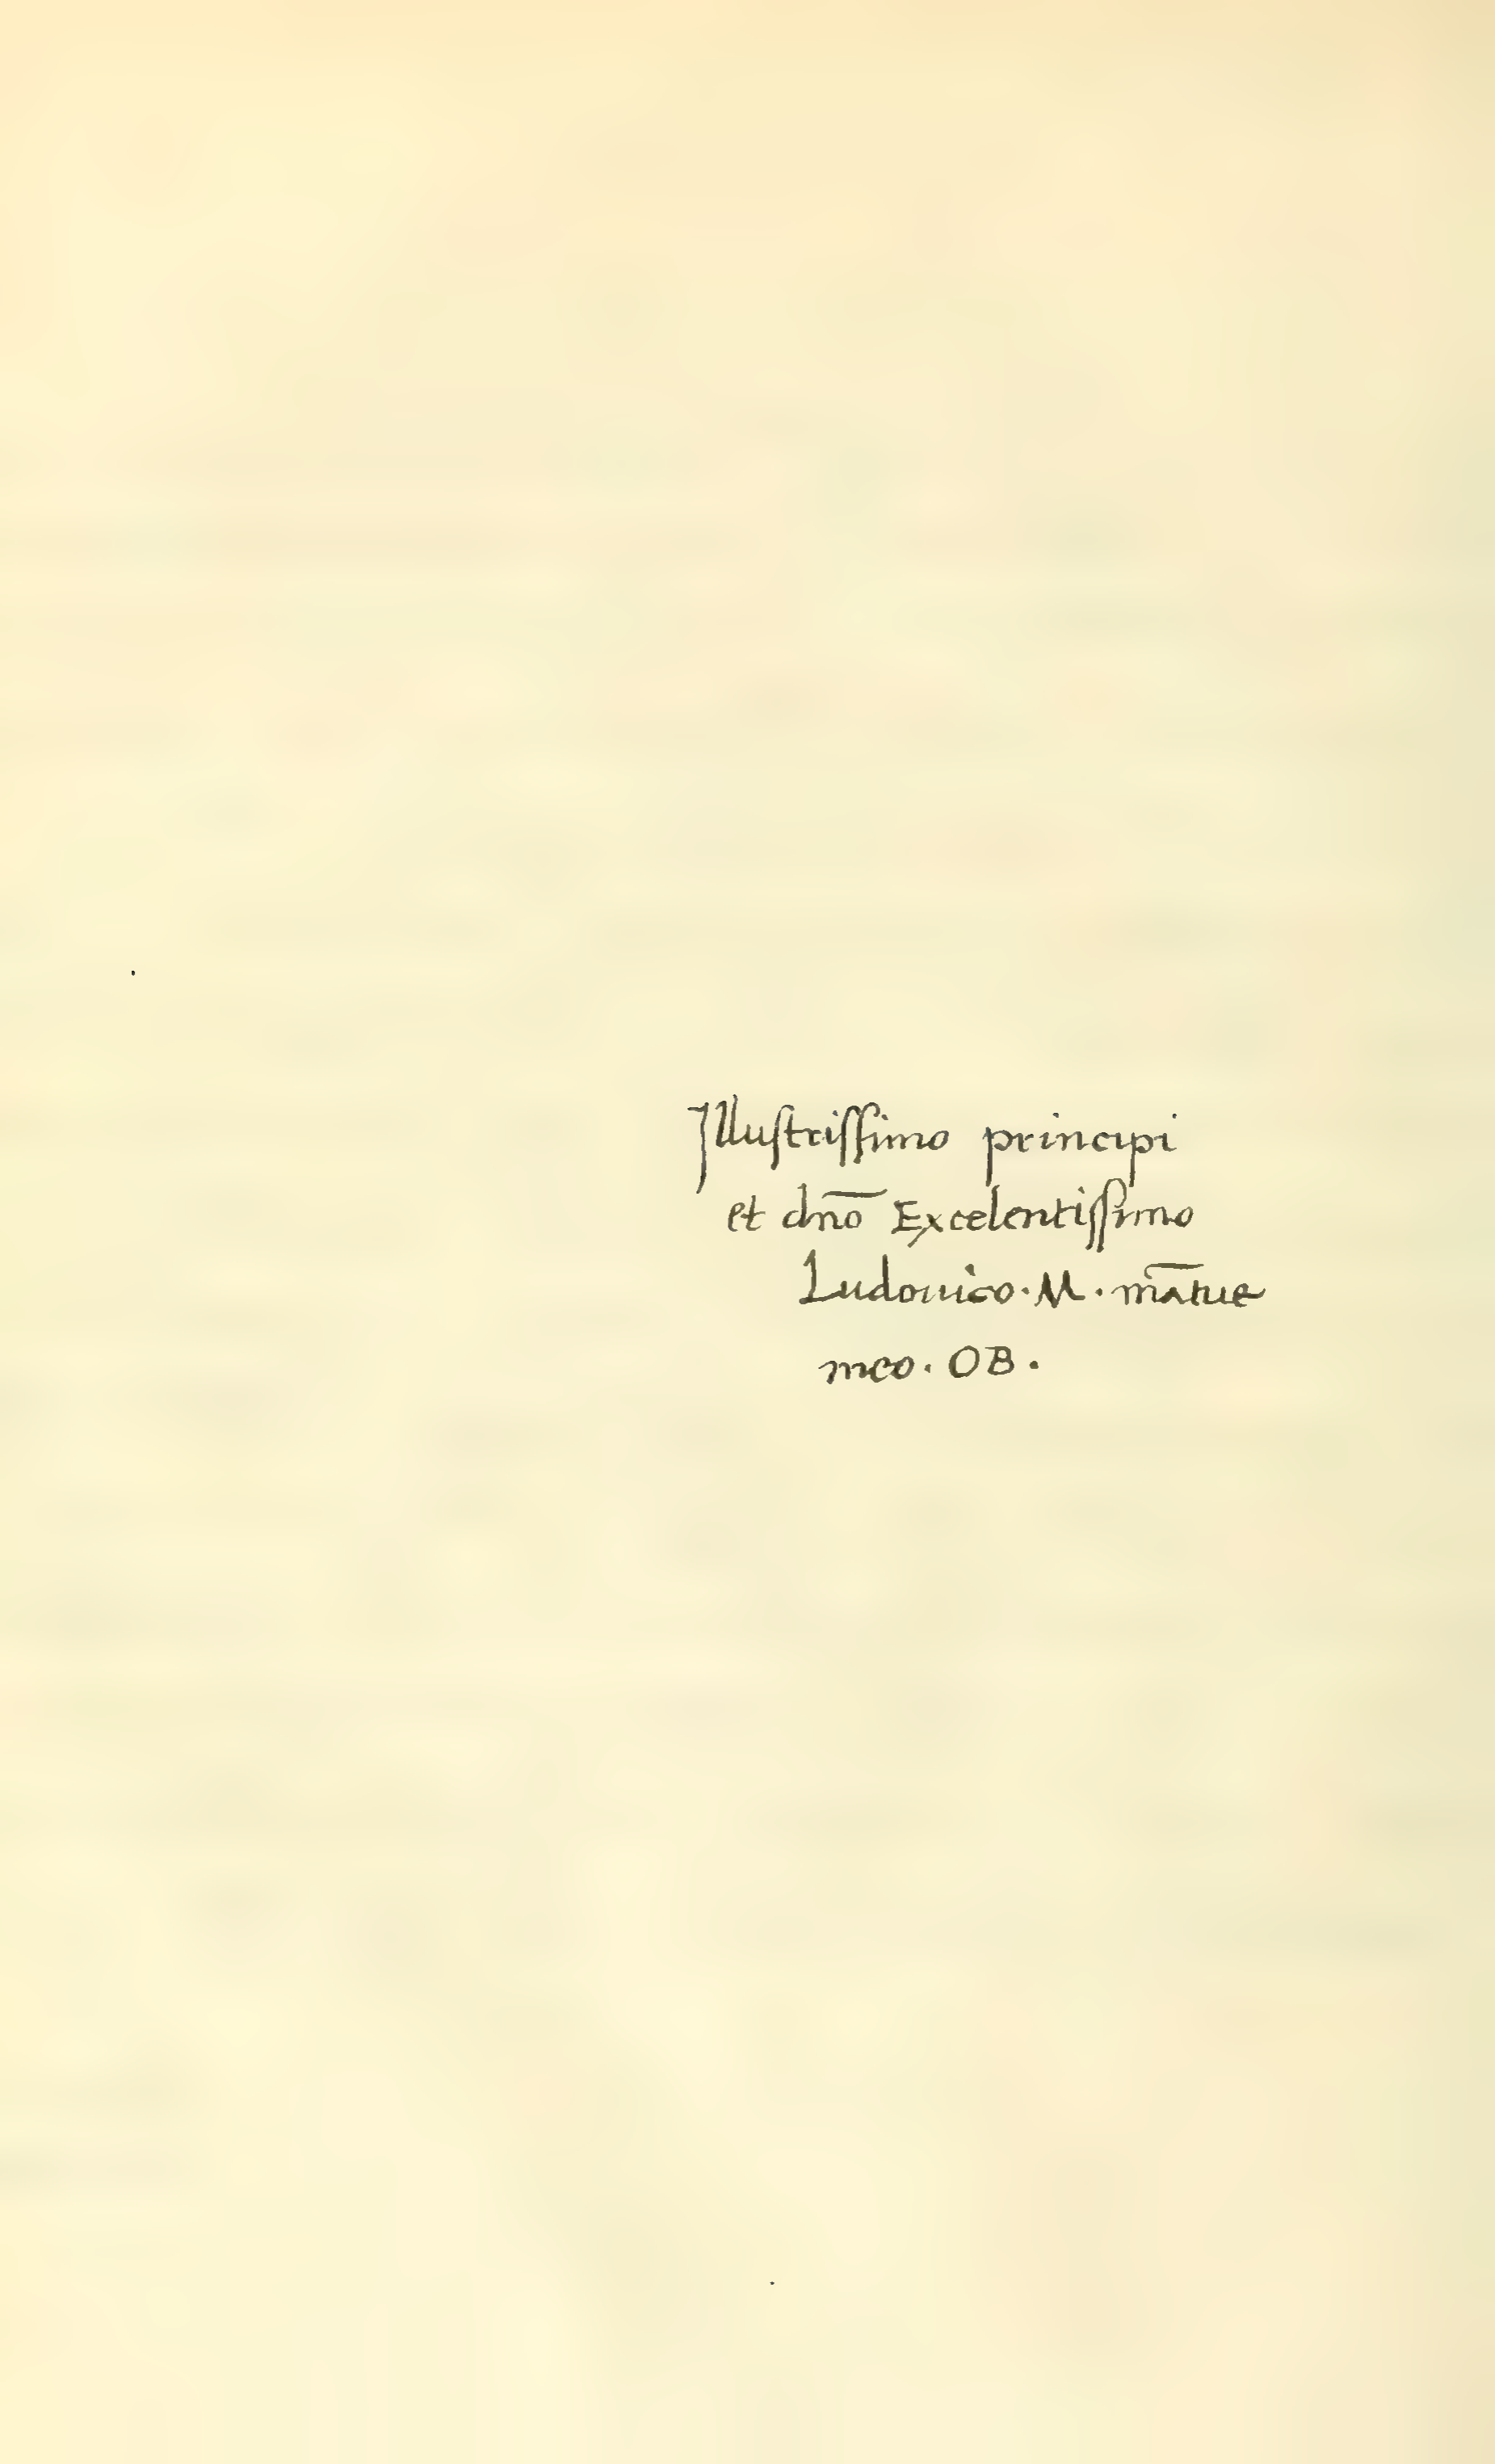 Illuſtriſſimo principi
et dn̄o Excelentiſſimo
Ludouico · M · mātue
nico · OB ·